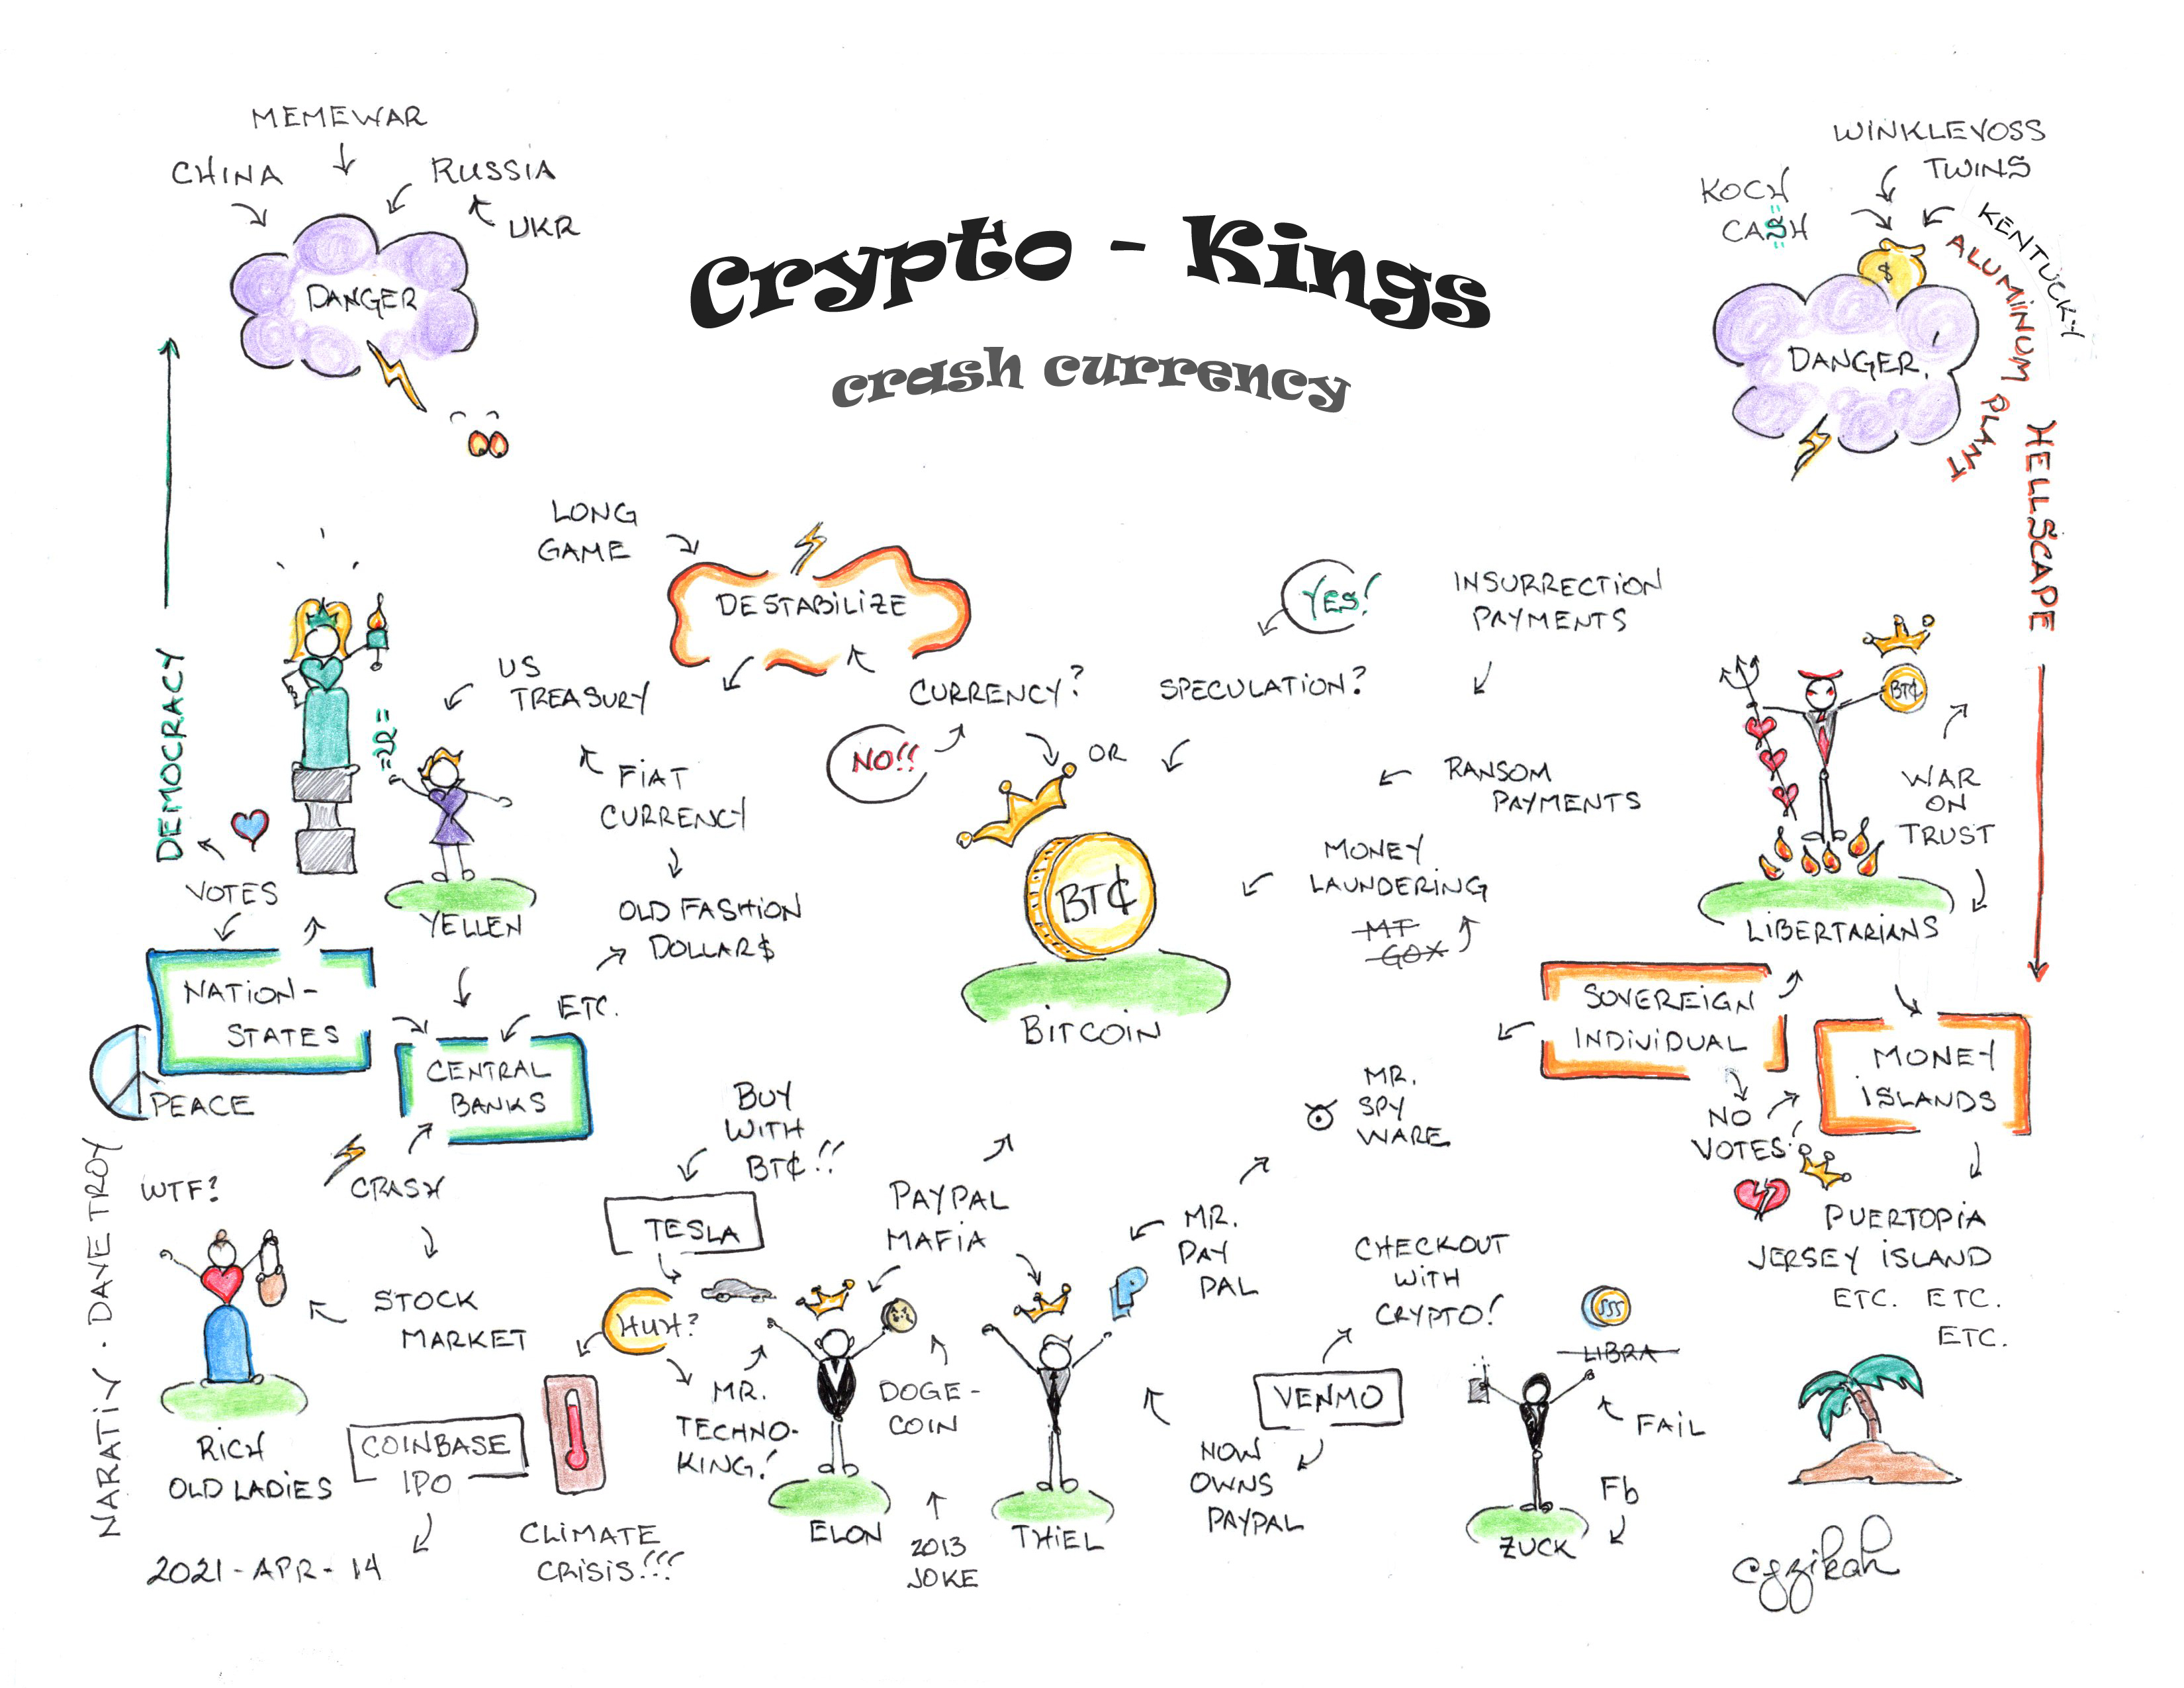 Crypto - Kings
crash currency
MEMEWAR
CHINA
RUSSIA
UKR
DANGER
WINKLEVOSS
TWINS
KOCH
CA$H
KENTUCKY
ALUMINUM PLANT
$
DANGER!
HELLSCAPE
DEMOCRACY
LONG
GAME
DESTABILIZE
US
TREASURY
FIAT
CURRENCY
OLD FASHION
DOLLAR$
YELLEN
VOTES
NATION-
STATES
PEACE
ETC.
CENTRAL
BANKS
CRASH
STOCK
MARKET
WTF?
RICH
OLD LADIES
NARATIV · DAVE TROY
CURRENCY?
NO!!
OR
SPECULATION?
YES!
INSURRECTION
PAYMENTS
RANSOM
PAYMENTS
MONEY
LAUNDERING
MT
GOX
BT₵
BITCOIN
BT₵
WAR
ON
TRUST
LIBERTARIANS
SOVEREIGN
INDIVIDUAL
NO
VOTES!
MONEY
ISLANDS
PUERTOPIA
JERSEY ISLAND
ETC. ETC.
ETC.
MR.
SPY
WARE
MR.
PAY
PAL
PAYPAL
MAFIA
BUY
WITH
BT₵!!
TESLA
HUH?
MR.
TECHNO-
KING!
ELON
DOGE-
COIN
2013
JOKE
THIEL
CHECKOUT
WITH
CRYPTO!
VENMO
NOW
OWNS
PAYPAL
LIBRA
FAIL
Fb
ZUCK
COINBASE
IPO
2021-APR-14
CLIMATE
CRISIS!!!